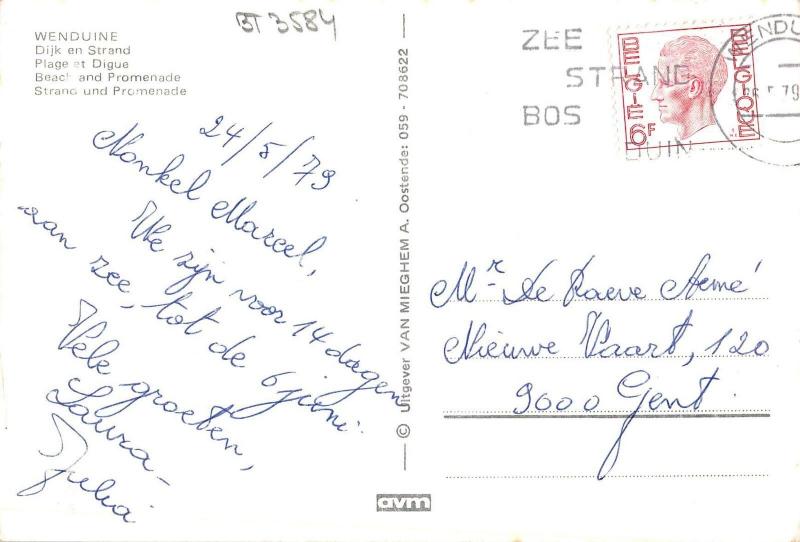 BT 3584
WENDUINE
Dijk en Strand
Plage et Digue
Beach and Promenade
Strand und Promenade
24/5/79
Nonkel Marcel,
We zijn voor 14 dagen
aan zee, tot de 6 juni.
Vele groeten,
Laura -
Julia
© Uitgever VAN MIEGHEM A. Oostende: 059 - 708622
avm
ZEE
STRAND
BOS
DUIN
BELGIE 6F BELGIQUE
WENDU
5 79
Mr De Raeve Aemé
Nieuwe Vaart, 120
9000 Gent.